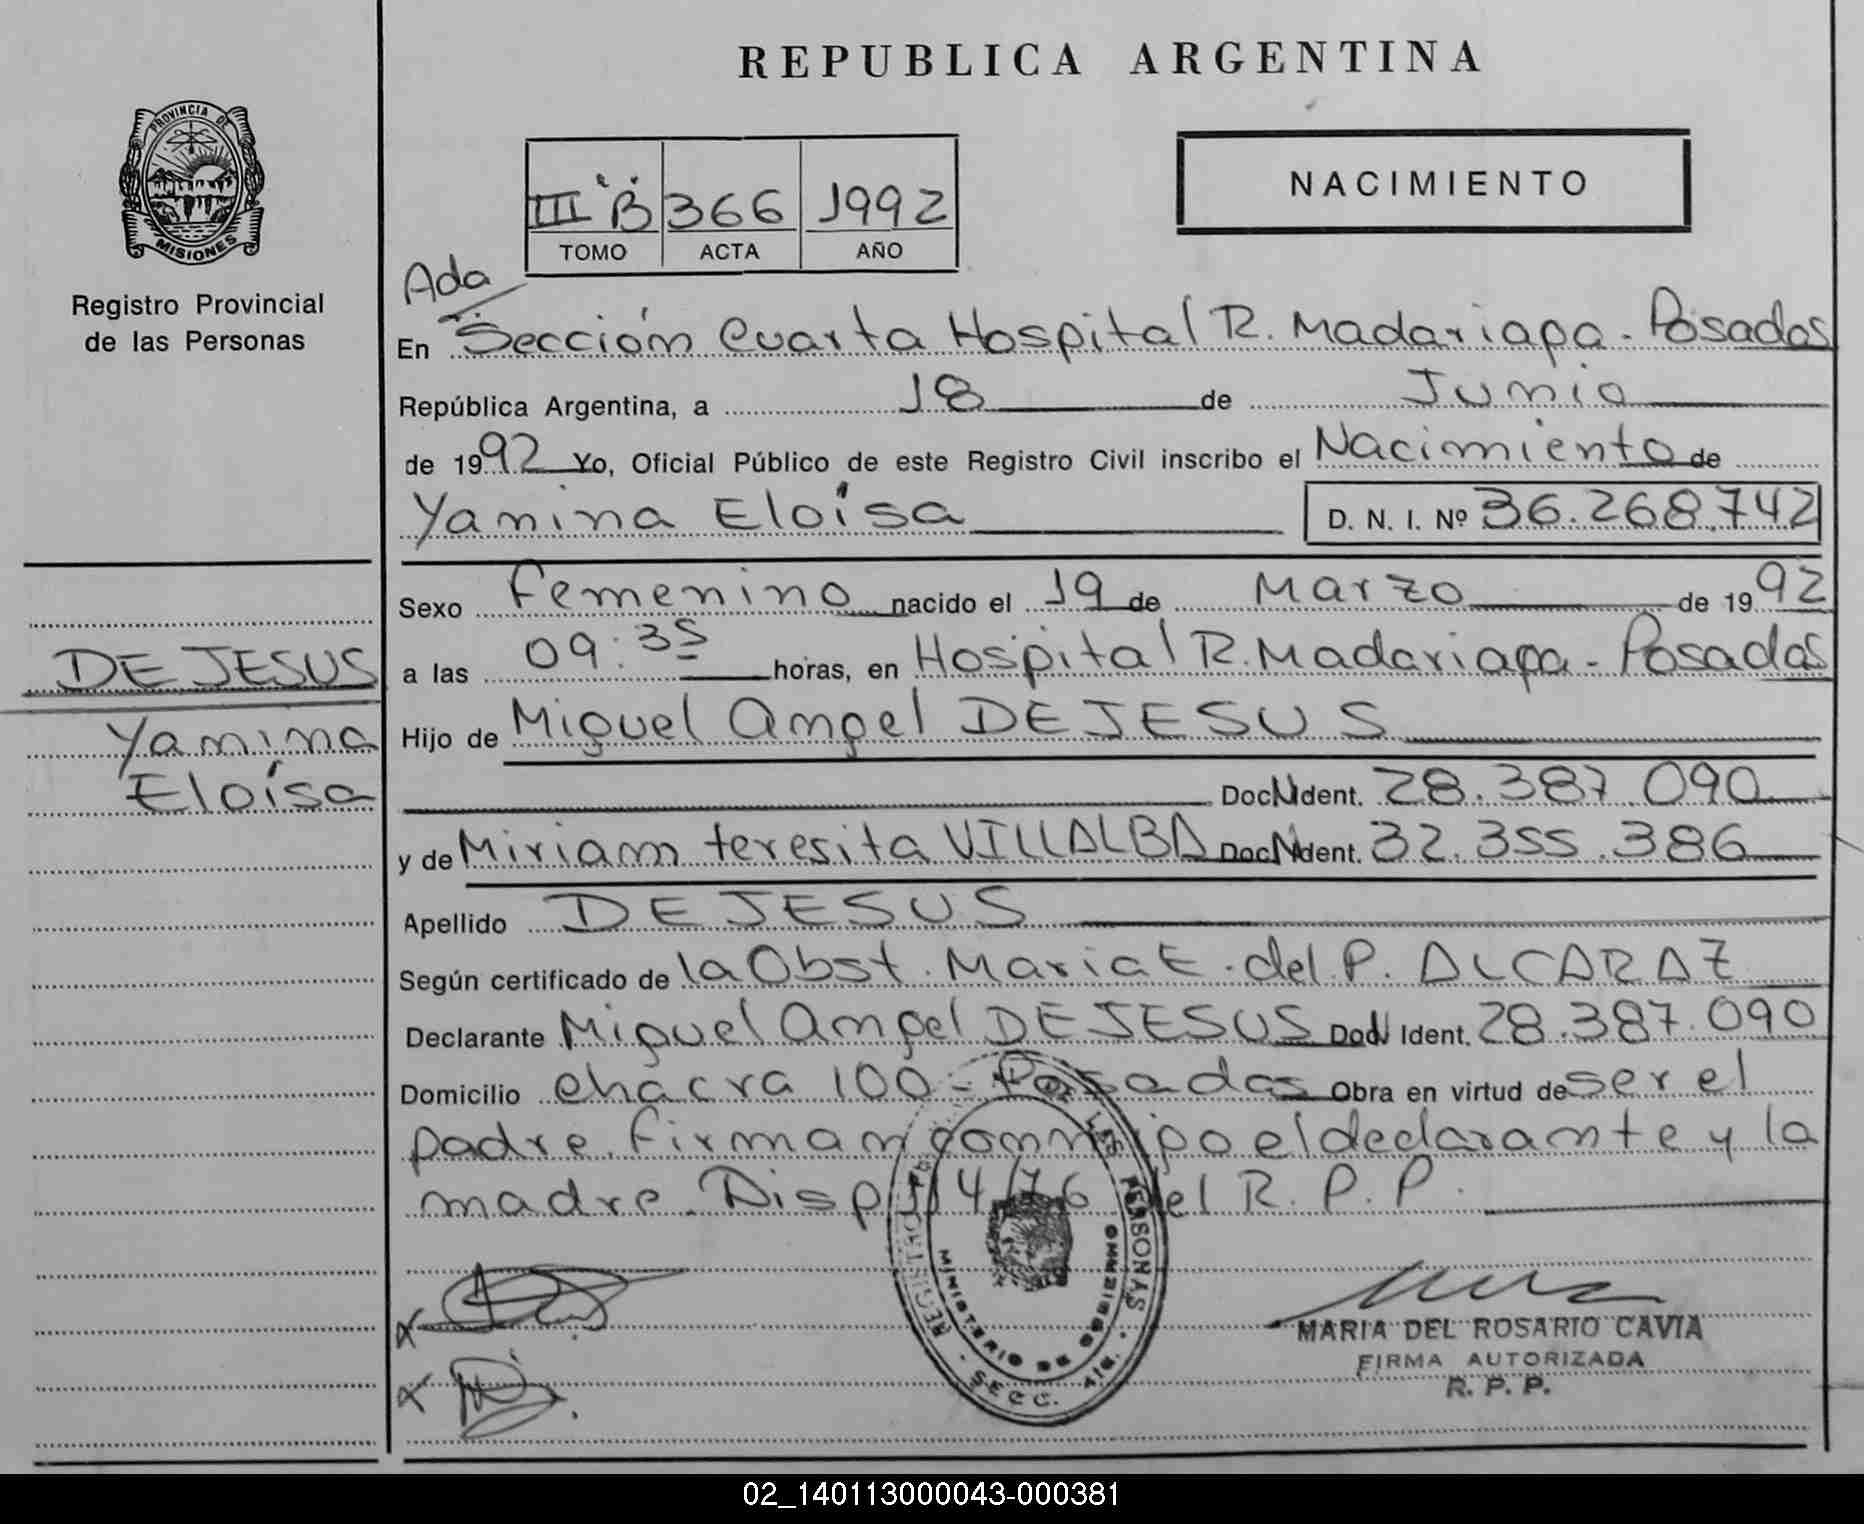 REPUBLICA ARGENTINA
PROVINCIA DE
MISIONES
Registro Provincial
de las Personas
III "B" 366 1992
TOMO ACTA AÑO
NACIMIENTO
Ada
En Sección Cuarta Hospital R. Madariaga - Posadas
República Argentina, a 18 de Junio
de 1992 Yo, Oficial Público de este Registro Civil inscribo el Nacimiento de
Yanina Eloísa D. N. I. Nº 36.268.742
Sexo Femenino nacido el 19 de Marzo de 1992
a las 09:35 horas, en Hospital R. Madariaga - Posadas
DE JESUS
Yanina
Eloísa
Hijo de Miguel Angel DE JESUS
Doc. Ident. 28.387.090
y de Miriam teresita VILLALBA Doc. Ident. 32.355.386
Apellido DE JESUS
Según certificado de la Obst. Maria E. del P. ALCARAZ
Declarante Miguel Angel DE JESUS Doc. Ident. 28.387.090
Domicilio chacra 100 - Posadas Obra en virtud de ser el
padre. Firman conmigo el declarante y la
madre. Disp. 114/76 del R. P. P.
REGISTRO PD. DE LAS PERSONAS
MINISTERIO DE GOBIERNO
SECC. 4ta.
MARIA DEL ROSARIO CAVIA
FIRMA AUTORIZADA
R. P. P.
02_140113000043-000381